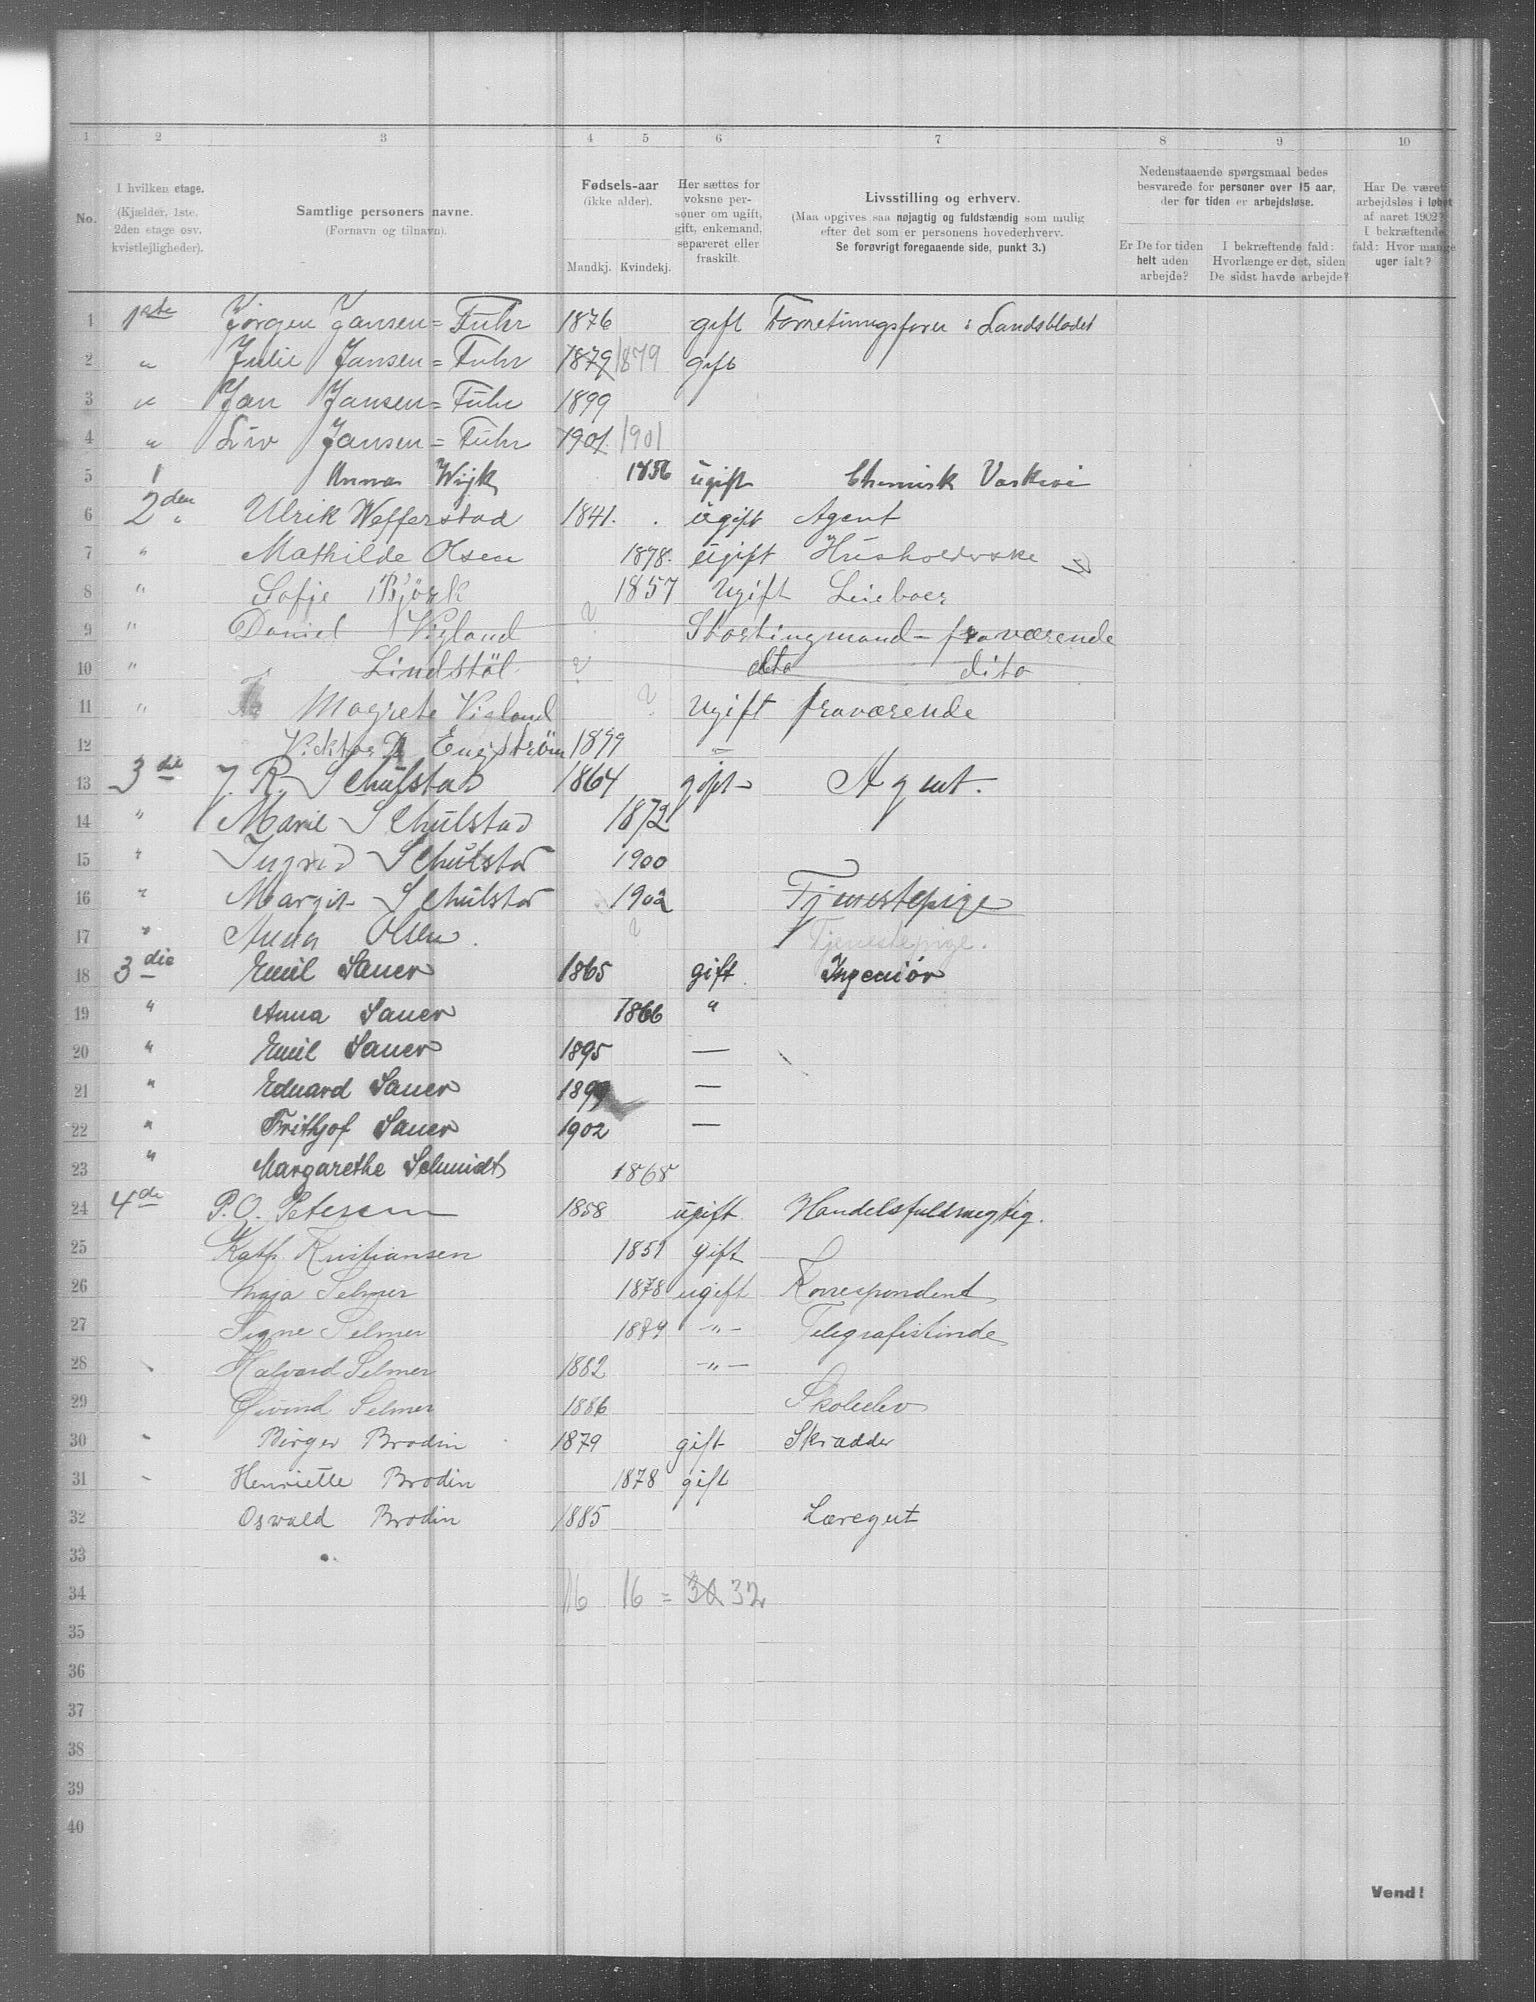 1 2 3 4 5 6 7 8 9 10
No. I hvilken etage. (Kjælder, 1ste, 2den etage osv. kvistlejligheder). Samtlige personers navne. (Fornavn og tilnavn). Fødsels-aar (ikke alder). Mandkj. Kvindekj. Her sættes for voksne personer om ugift, gift, enkemand, separeret eller fraskilt. Livsstilling og erhverv. (Maa opgives saa nøjagtig og fuldstændig som mulig efter det som er personens hovederhverv. Se forøvrigt foregaaende side, punkt 3.) Nedenstaaende spørgsmaal bedes besvarede for personer over 15 aar, der for tiden er arbejdsløse. Er De for tiden helt uden arbejde? I bekræftende fald: Hvorlænge er det, siden De sidst havde arbejde? Har De været arbejdsløs i løbet af aaret 1902? I bekræftende fald: Hvor mange uger ialt?
1 1ste Jörgen Jansen=Fuhr 1876 gift Forretningsförer i Landsbladet
2 " Julie Jansen=Fuhr 1879 1879 gift
3 " Jan Jansen=Fuhr 1899
4 " Liv Jansen=Fuhr 1901 1901
5 1 Anna Wijk 1856 ugift Chemisk Vaskeri
6 2den " Ulrik Wefferstad 1841. ugift Agent
7 " Mathilde Olsen 1878. ugift
8 " Sofie Björk 1857 ugift Leieboer
9 " Daniel Vigland ? Stortingmand - fraværende
10 " Lindstöl ? dito dito
11 " Magrete Vigland ? ugift fraværende
12 Viktor Engström 1899 "
13 3die J. R. Schulstad 1864 gift Agent.
14 " Marie Schulstad 1872
15 " Ingrid Schulstad 1900
16 " Margit Schulstad 1902 Tjenestepige
17 " Anna Olsen. ? Tjenestepige.
18 3die Emil Sauer 1865 gift Ingeniör
19 " Anna Sauer 1866 "
20 " Emil Sauer 1895 —
21 " Eduard Sauer 1899 —
22 " Frithjof Sauer 1902 —
23 " Margarethe Schmidt 1868
24 4de P. O. Petersen 1858 ugift Handelsfuldmegtig.
25 Kath. Kristiansen 1851 gift
26 Maja Selmer 1878 ugift Korrespondent
27 Signe Selmer 1879 -"- Telegrafistinde
28 Halvard Selmer 1882 -"-
29 Øivind Selmer 1886 Skoleelev
30 Birger Brodin 1879 gift Skrædder
31 Henriette Brodin 1878 gift
32 Oswald Brodin 1885 Læregut
33
34 16 16 = 30 32
35
36
37
38
39
40
Vend!